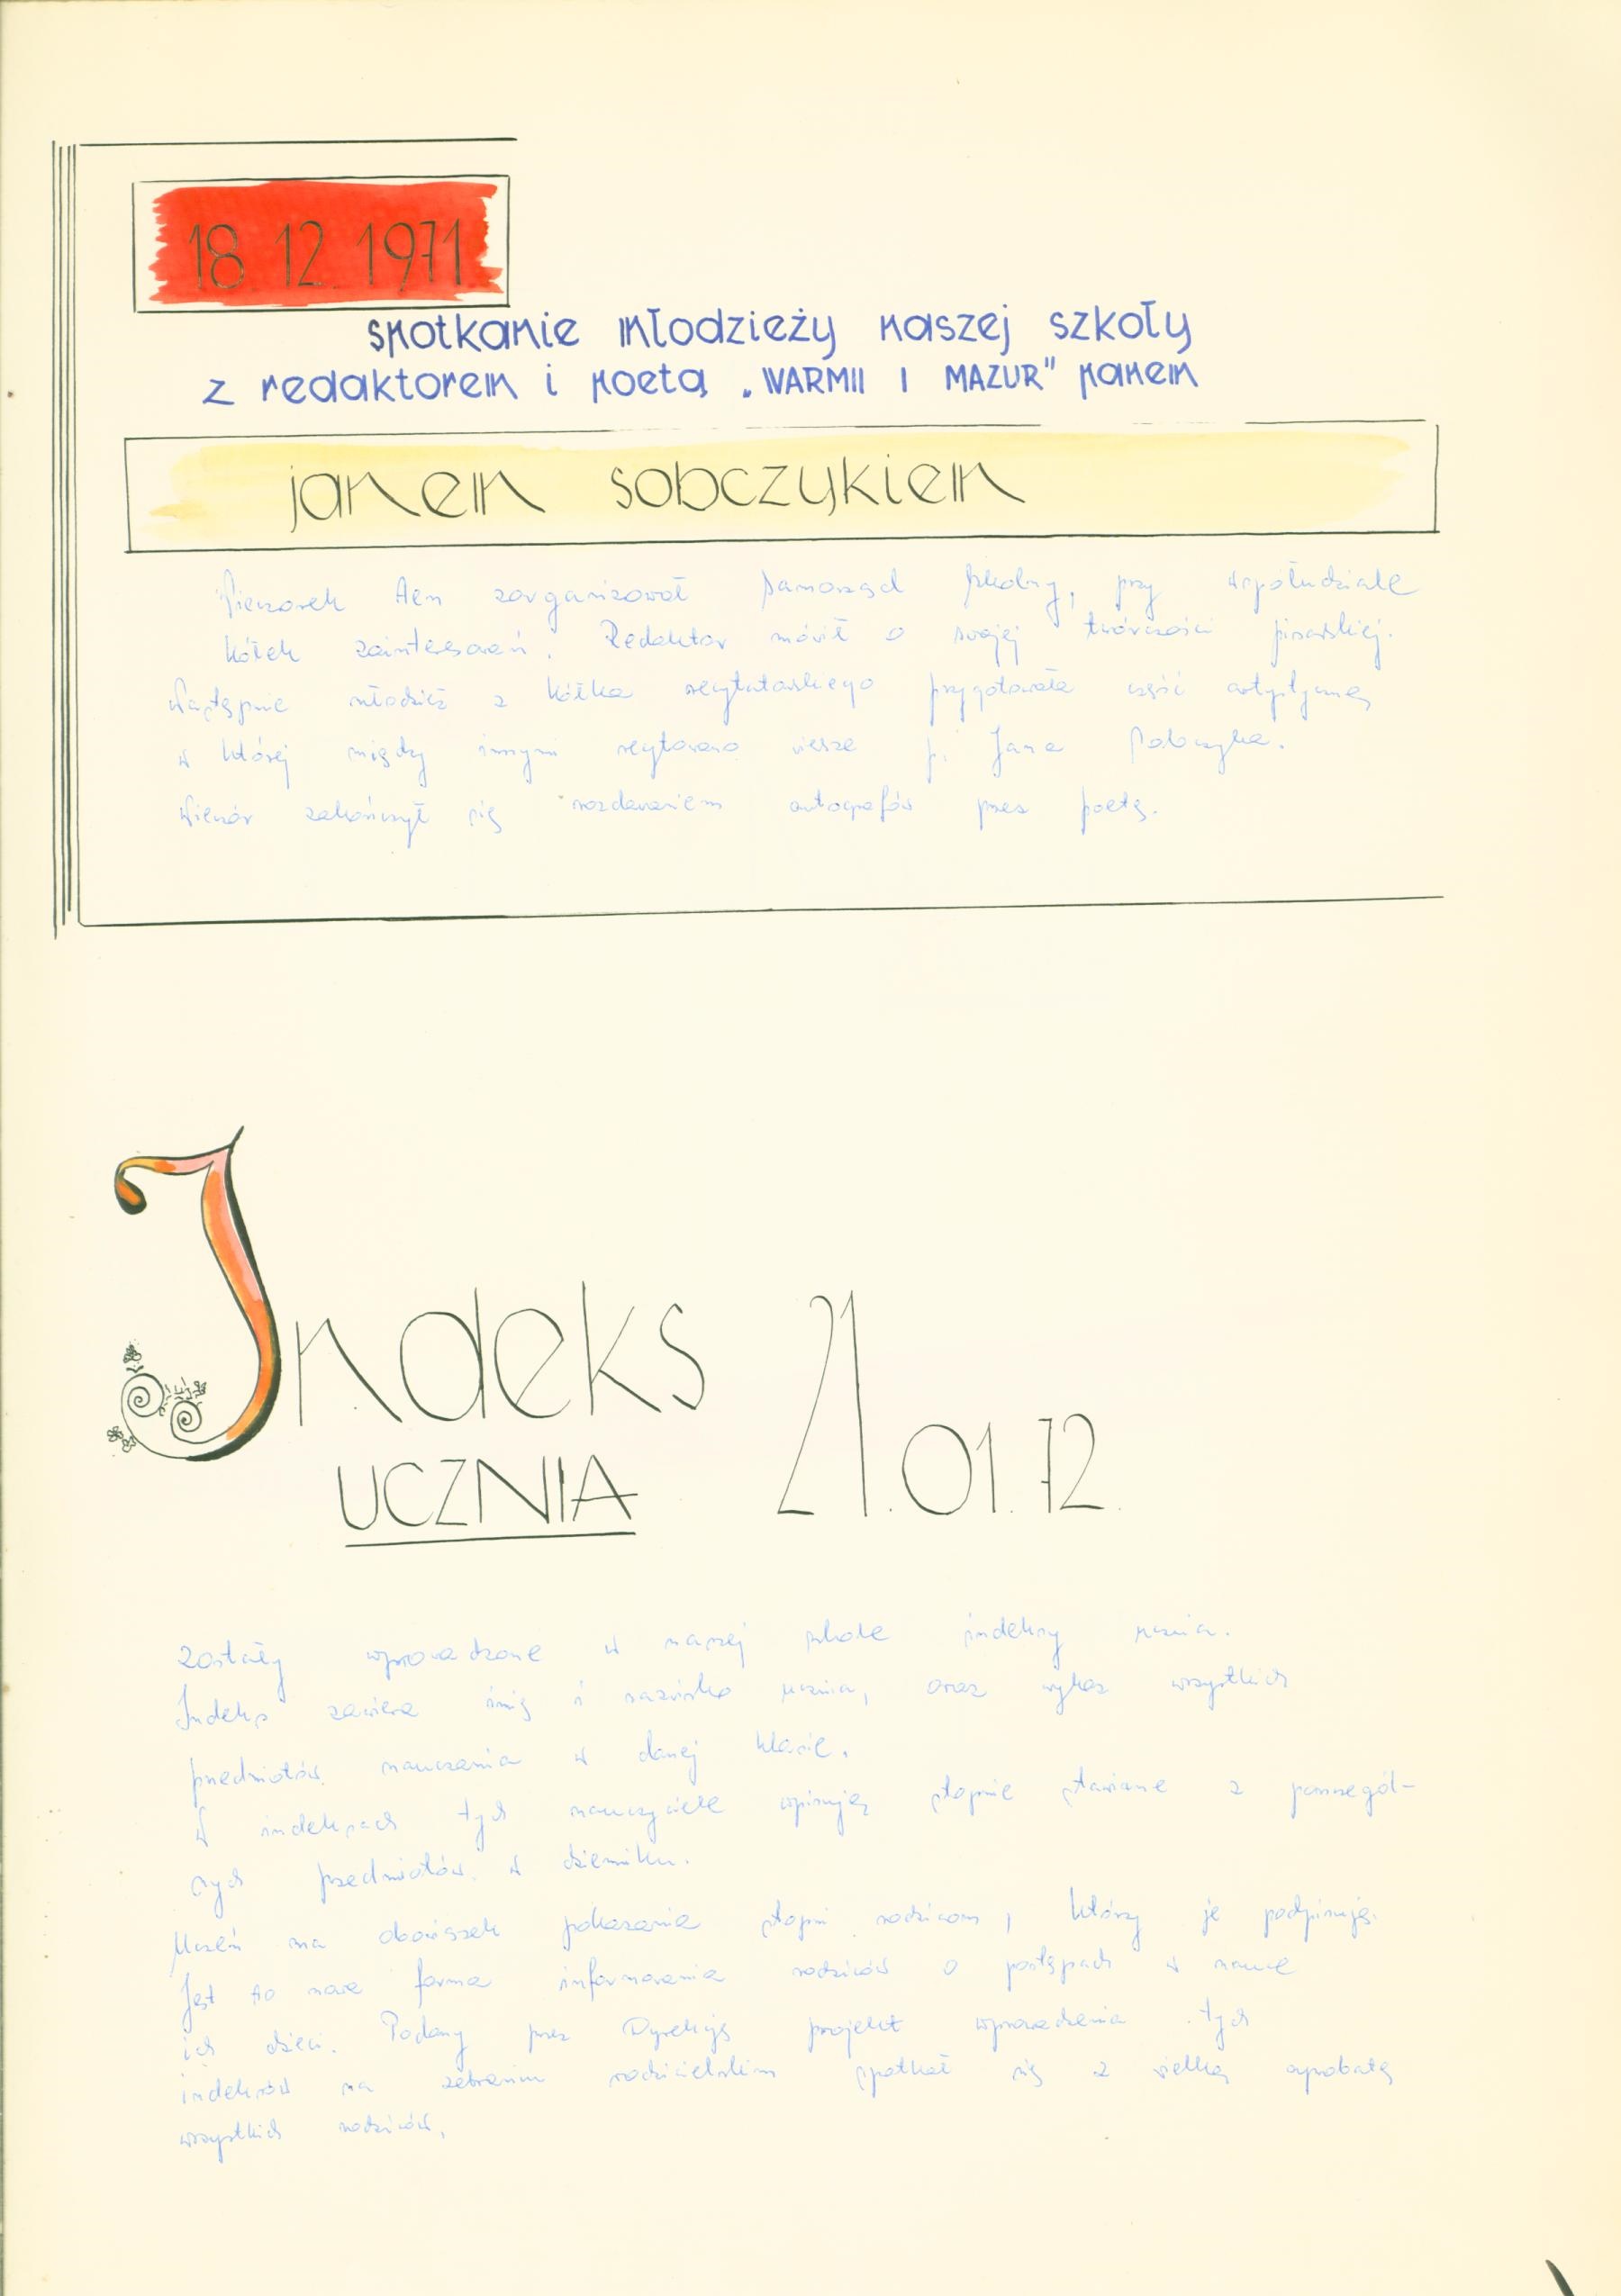 18.12.1971
spotkanie młodzieży naszej szkoły
z redaktorem i poetą „WARMII I MAZUR" panem
janem sobczykiem
Wieczorek ten zorganizował Samorząd Szkolny, przy współudziale
kółek zainteresowań. Redaktor mówił o swojej twórczości pisarskiej.
Następnie młodzież z kółka recytatorskiego przygotowała część artystyczną
w której między innymi recytowano wiersze p. Jana Sobczyka.
Wieczór zakończył się rozdawaniem autografów przez poetę.
Indeks 21.01.72.
UCZNIA
Zostały wprowadzone w naszej szkole indeksy ucznia.
Indeks zawiera imię i nazwisko ucznia, oraz wykaz wszystkich
przedmiotów nauczania w danej klasie.
W indeksach tych nauczyciele wpisują stopnie stawiane z poszczegól-
nych przedmiotów w dzienniku.
Uczeń ma obowiązek pokazania stopni rodzicom, którzy je podpisują.
Jest to nowa forma informowania rodziców o postępach w nauce
ich dzieci. Podany przez Dyrekcję projekt wprowadzenia tych
indeksów na zebraniu rodzicielskim spotkał się z wielką aprobatą
wszystkich rodziców.